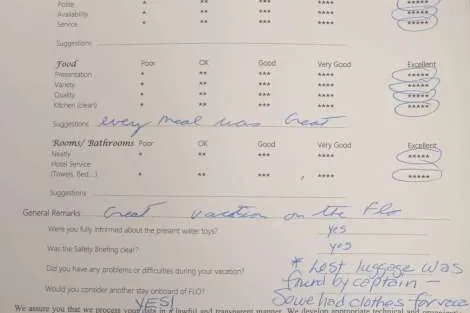 Polite * ** *** **** *****
Availability * ** *** **** *****
Service * ** *** **** *****
Suggestions
Food Poor OK Good Very Good Excellent
Presentation * ** *** **** *****
Variety * ** *** **** *****
Quality * ** *** **** *****
Kitchen (clean) * ** *** **** *****
Suggestions every meal was Great
Rooms/ Bathrooms Poor OK Good Very Good Excellent
Neatly * ** *** **** *****
Hotel Service
(Towels, Bed,..) * ** *** **** *****
Suggestions
General Remarks Great vacation on the Flo
Were you fully informed about the present water toys? yes
Was the Safety Briefing clear? yes
Did you have any problems or difficulties during your vacation? * Lost luggage was
found by captain –
Would you consider another stay onboard of FLO? YES! So we had clothes for
We assure you that we process your data in a lawful and transparent manner. We develop appropriate technical and